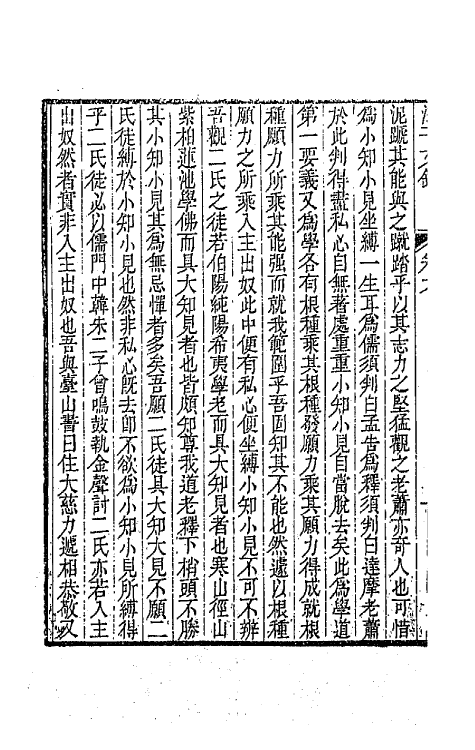 泥蹍其能與之蹴踏乎以其志力之堅猛觀之老蕭亦奇人也可惜
為小知小見坐縛一生耳為儒須判白孟告為釋須判白達摩老蕭
於此判得盡私心自無著處重重小知小見自當脫去矣此為學道
第一要義又為學各有根種乘其根種發願力乘其願力得成就根
種願力所乘其能强而就我範圍乎吾固知其不能也然遽以根種
願力之所乘入主出奴此中便有私心便坐縛小知小見不可不辨
吾觀二氏之徒若伯陽純陽希夷學老而具大知見者也寒山徑山
紫柏蓮池學佛而具大知見者也皆頗知尊我道老釋下梢頭不勝
其小知小見其為無忌憚者多矣吾願二氏徒具大知大見不願二
氏徒縛於小知小見也然非私心既去卽不欲為小知小見所縛得
乎二氏徒必以儒門中韓朱二子曾鳴鼓執金聲討二氏亦若入主
出奴然者實非入主出奴也吾與臺山書曰住大慈力遞相恭敬又